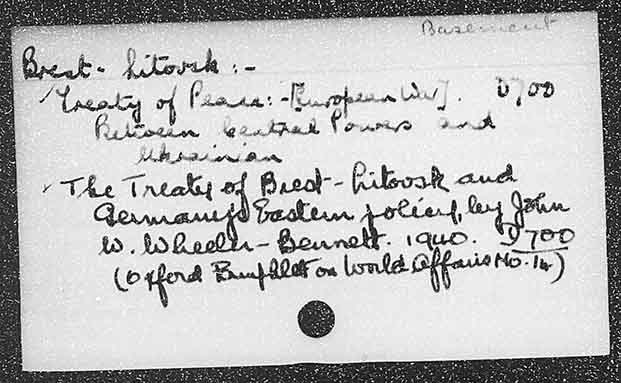 Basement
Brest-Litovsk:-
✓Treaty of Peace:-[European War]. D700
Between Central Powers and
Ukrainian
✓ The Treaty of Brest-Litovsk and
Germany's Eastern policy, by John
W. Wheeler-Bennett. 1940. D700
(Oxford Pamphlet on World Affairs No. 14)